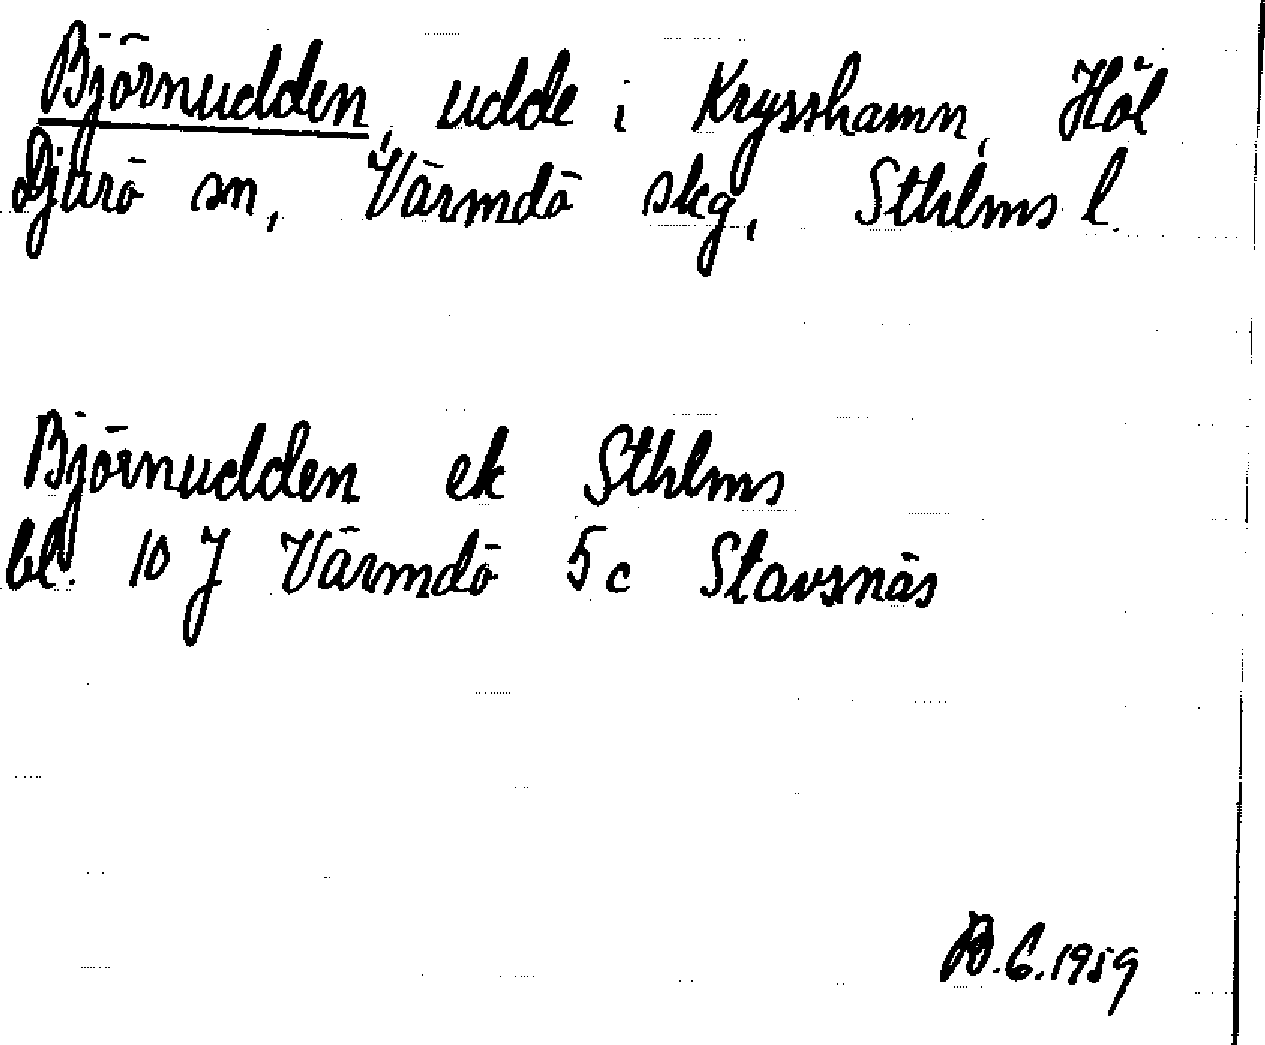 Björnudden, udde i Krysshamn, Höl
Djurö sn, Värmdö skg, Sthlms l.
Björnudden ek Sthlms
bl. 10 J Värmdö 5 c Stavsnäs
B.C.1959